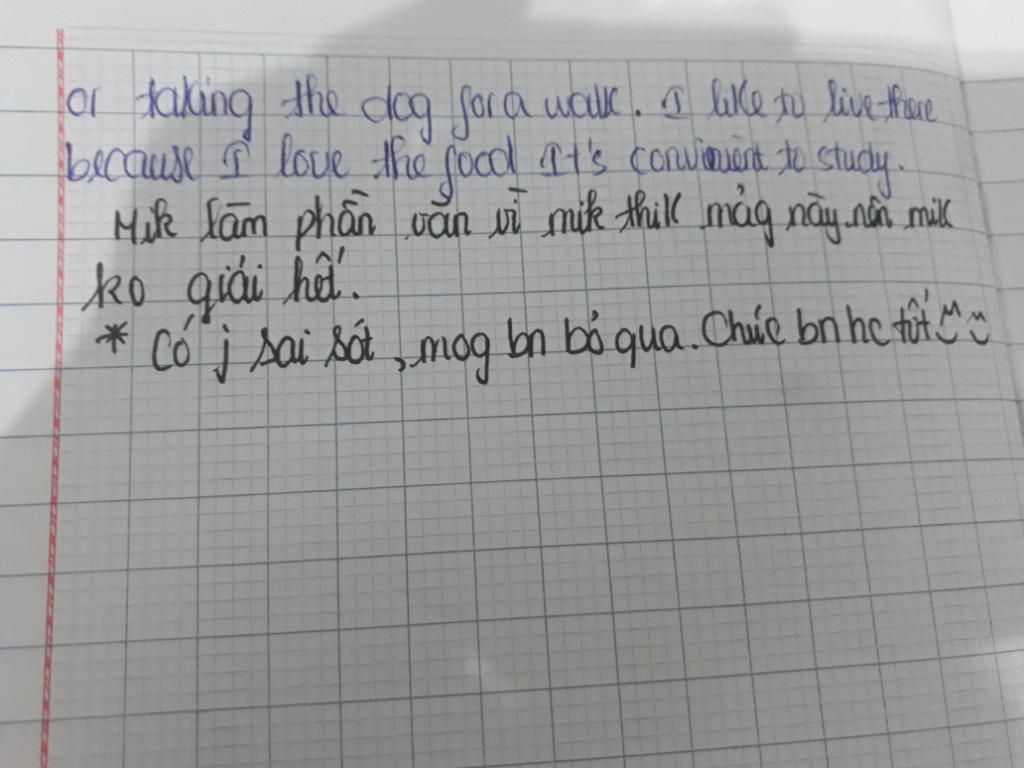 or taking the dog for a walk. I like to live there
because I love the food It's convinient to study.
Mik làm phần văn vì mik thik mảg này nên mik
ko giải hết.
* Có j sai sót, mog bn bỏ qua. Chúc bn hc tốt